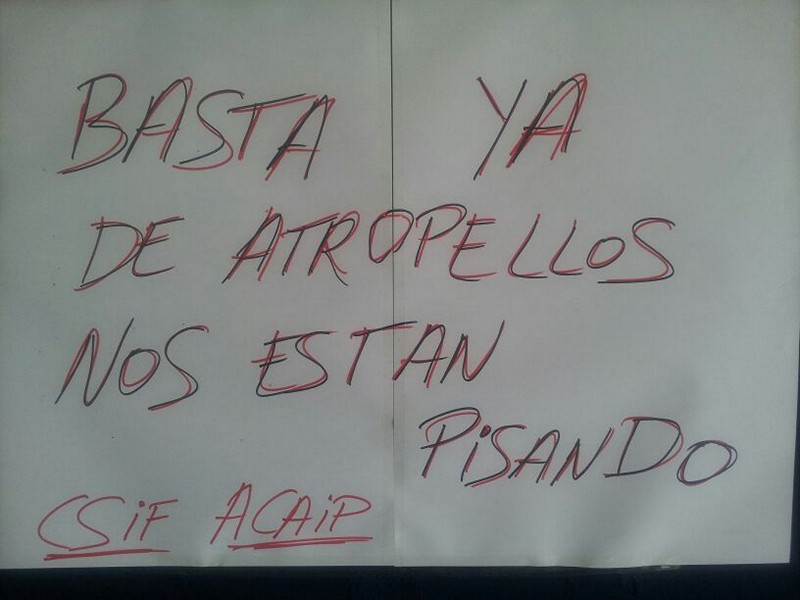 BASTA YA
DE ATROPELLOS
NOS ESTAN
PiSANDO
CSiF ACAiP